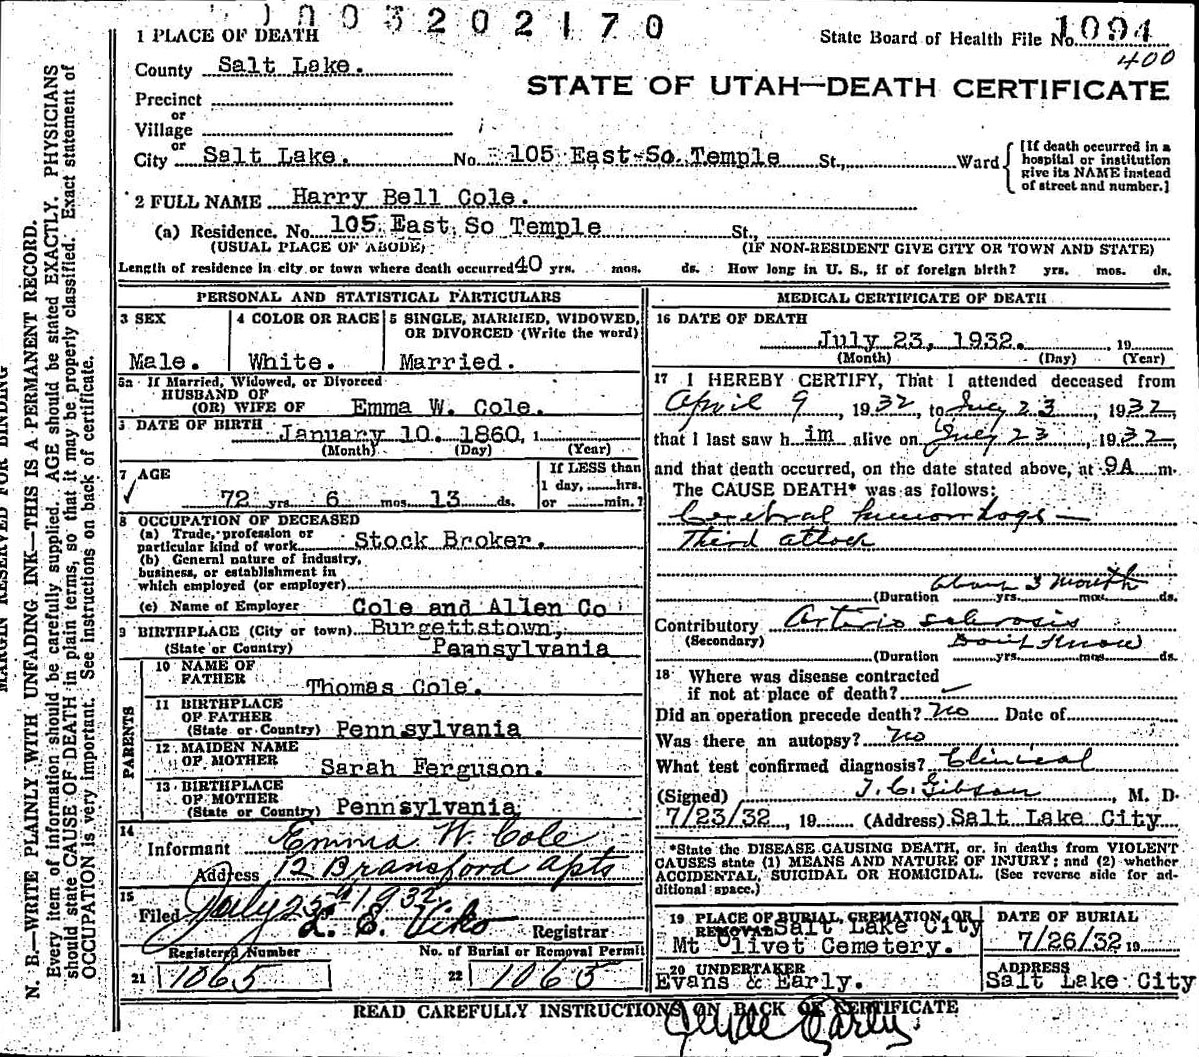 1003202170
1 PLACE OF DEATH
State Board of Health File No. 1094
400
County Salt Lake.
STATE OF UTAH—DEATH CERTIFICATE
Precinct
or
Village
or
City Salt Lake. No. 105 East So. Temple St., Ward
[If death occurred in a hospital or institution give its NAME instead of street and number.]
2 FULL NAME Harry Bell Cole.
(a) Residence. No. 105 East So Temple St.,
(USUAL PLACE OF ABODE) (IF NON-RESIDENT GIVE CITY OR TOWN AND STATE)
Length of residence in city or town where death occurred 40 yrs. mos. ds. How long in U. S., if of foreign birth? yrs. mos. ds.
PERSONAL AND STATISTICAL PARTICULARS
3 SEX
Male.
4 COLOR OR RACE
White.
5 SINGLE, MARRIED, WIDOWED,
OR DIVORCED (Write the word)
Married.
5a If Married, Widowed, or Divorced
HUSBAND OF
(OR) WIFE OF Emma W. Cole.
DATE OF BIRTH January 10. 1860, 1
(Month) (Day) (Year)
7 AGE
72 yrs. 6 mos. 13 ds.
If LESS than
1 day, hrs.
or min.?
8 OCCUPATION OF DECEASED
(a) Trade, profession or
particular kind of work Stock Broker.
(b) General nature of industry,
business, or establishment in
which employed (or employer)
(c) Name of Employer Cole and Allen Co
9 BIRTHPLACE (City or town) Burgettstown,
(State or Country) Pennsylvania
PARENTS
10 NAME OF
FATHER
Thomas Cole.
11 BIRTHPLACE
OF FATHER
(State or Country) Pennsylvania
12 MAIDEN NAME
OF MOTHER
Sarah Ferguson.
13 BIRTHPLACE
OF MOTHER
(State or Country) Pennsylvania
14
Informant Emma W. Cole
Address 12 Bransford apts
15
Filed July 25 1932
L. E. Viko Registrar
Registered Number
21 1065
No. of Burial or Removal Permit
22 1065
MEDICAL CERTIFICATE OF DEATH
16 DATE OF DEATH
July 23, 1932. , 19
(Month) (Day) (Year)
17 I HEREBY CERTIFY, That I attended deceased from
April 9, 1932, to July 23, 1932,
that I last saw him alive on July 23, 1932,
and that death occurred, on the date stated above, at 9A m.
The CAUSE DEATH* was as follows:
Cerebral hemorrhage —
Third attack
about 3 month
(Duration yrs. mos. ds.
Contributory Arterio sclerosis
(Secondary) Don't Know
(Duration yrs. mos. ds.
18 Where was disease contracted
if not at place of death?
Did an operation precede death? No Date of
Was there an autopsy? No
What test confirmed diagnosis? Clinical
(Signed) T. C. Gibson, M. D.
7/23/32, 19 (Address) Salt Lake City
*State the DISEASE CAUSING DEATH, or, in deaths from VIOLENT
CAUSES state (1) MEANS AND NATURE OF INJURY; and (2) whether
ACCIDENTAL, SUICIDAL OR HOMICIDAL. (See reverse side for ad-
ditional space.)
19 PLACE OF BURIAL, CREMATION, OR
REMOVAL Salt Lake City
Mt Olivet Cemetery.
DATE OF BURIAL
7/26/32 19
20 UNDERTAKER
Evans & Early.
ADDRESS
Salt Lake City
READ CAREFULLY INSTRUCTIONS ON BACK OF CERTIFICATE
MARGIN RESERVED FOR BINDING
N. B.—WRITE PLAINLY WITH UNFADING INK—THIS IS A PERMANENT RECORD.
Every item of information should be carefully supplied. AGE should be stated EXACTLY. PHYSICIANS
should state CAUSE OF DEATH in plain terms, so that it may be properly classified. Exact statement of
OCCUPATION is very important. See instructions on back of certificate.